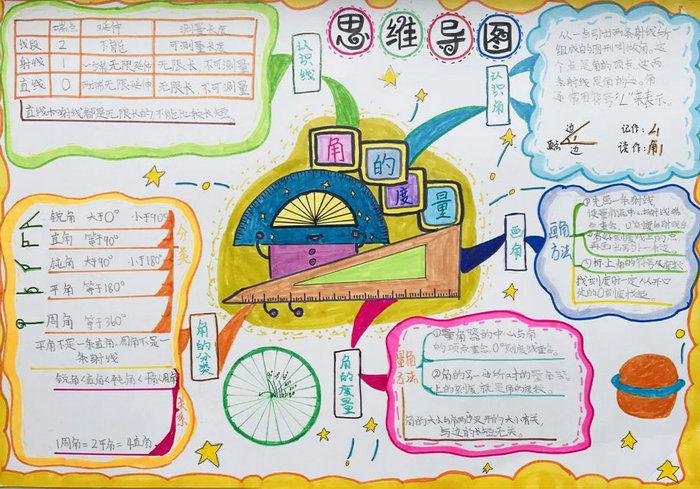 思维导图
端点 延伸 测量长度
线段 2 不能 可测量长度
射线 1 一端无限延伸 无限长,不可测量
直线 0 两端无限延伸 无限长,不可测量
直线和射线都是无限长的不能比较长短
认识线
角的度量
认识角
从一点引出两条射线所
组成的图形叫做角,这
个点是角的顶点,这两
条射线是角的边。角
通常用符号"∠"来表示。
边
顶点
边
记作:∠1
读作:角1
画角
画角方法
①先画一条射线
找刻度
的0刻度线
分类
锐角 大于0° 小于90°
直角 等于90°
钝角 大于90° 小于180°
平角 等于180°
周角 等于360°
平角不是一条直线,周角不是一
条射线
锐角<直角<钝角<平角<周角
关系
1周角=2平角=4直角
角的分类
角的度量
量角方法
①量角器的中心与角
的顶点重合,0°刻度线重合。
②角的另一边所对的量角器
上的刻度,就是角的度数。
角的大小与角两边叉开的大小有关,
与边的长短无关。